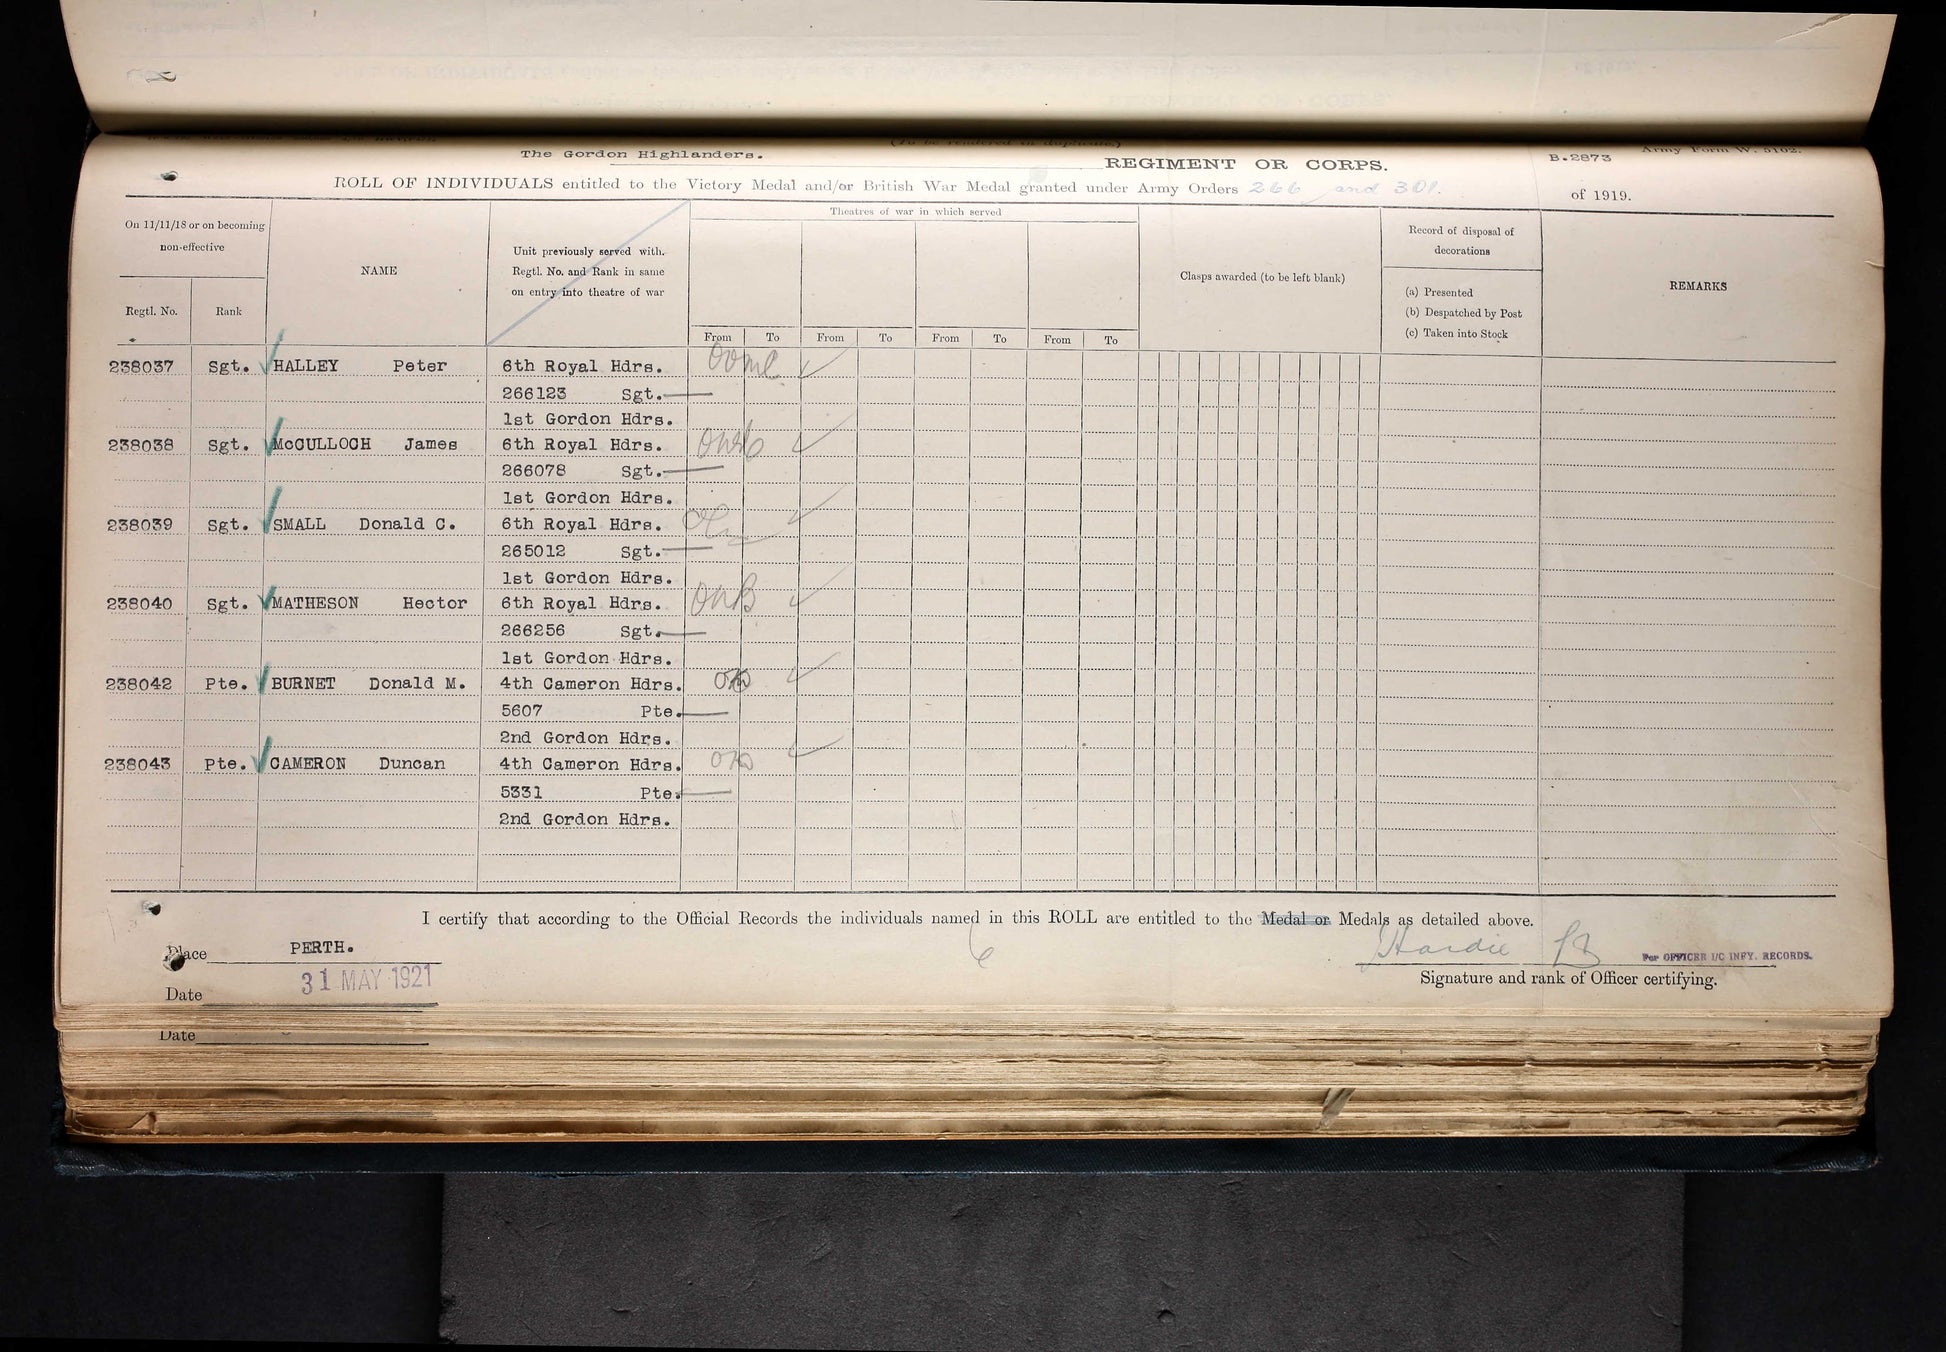 The Gordon Highlanders. REGIMENT OR CORPS. B.2873 Army Form W. 5102.
ROLL OF INDIVIDUALS entitled to the Victory Medal and/or British War Medal granted under Army Orders 266 and 301. of 1919.
On 11/11/18 or on becoming non-effective
Regtl. No. Rank
NAME
Unit previously served with.
Regtl. No. and Rank in same
on entry into theatre of war
Theatres of war in which served
From To From To From To From To
Clasps awarded (to be left blank)
Record of disposal of
decorations
(a) Presented
(b) Despatched by Post
(c) Taken into Stock
REMARKS
238037 Sgt. HALLEY Peter 6th Royal Hdrs.
266123 Sgt.
1st Gordon Hdrs.
238038 Sgt. McCULLOCH James 6th Royal Hdrs.
266078 Sgt.
1st Gordon Hdrs.
238039 Sgt. SMALL Donald C. 6th Royal Hdrs.
265012 Sgt.
1st Gordon Hdrs.
238040 Sgt. MATHESON Hector 6th Royal Hdrs.
266256 Sgt.
1st Gordon Hdrs.
238042 Pte. BURNET Donald M. 4th Cameron Hdrs.
5607 Pte.
2nd Gordon Hdrs.
238043 Pte. CAMERON Duncan 4th Cameron Hdrs.
5331 Pte.
2nd Gordon Hdrs.
I certify that according to the Official Records the individuals named in this ROLL are entitled to the Medal or Medals as detailed above.
6
Place PERTH.
Hardie For OFFICER I/C INFY. RECORDS.
Signature and rank of Officer certifying.
Date 31 MAY 1921
Date